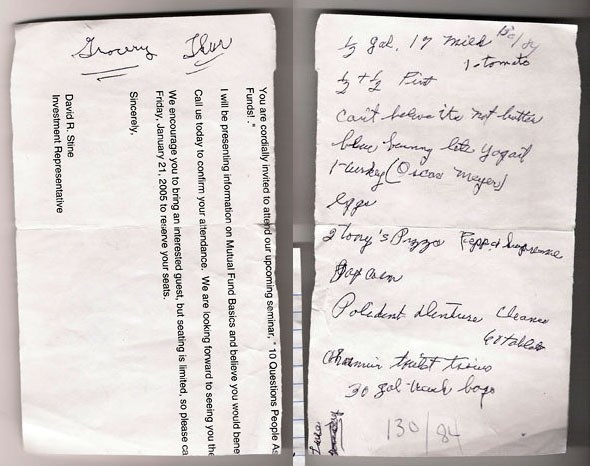 Grocery Thur
You are cordially invited to attend our upcoming seminar, "10 Questions People As
Funds!."
I will be presenting information on Mutual Fund Basics and believe you would bene
Call us today to confirm your attendance. We are looking forward to seeing you the
We encourage you to bring an interested guest, but seating is limited, so please ca
Friday, January 21, 2005 to reserve your seats.
Sincerely,
David R. Stine
Investment Representative
½ gal, 1% milk
1-tomato
½ + ½ Pint
Can't believe its not butter
blue bunny lite Yogart
1-turkey (Oscar Meyer)
Eggs
2 Tony's Pizza Pepp & Supreme
Pop corn
Polident denture Cleanse
60 tablets
Charmin toilet
30 gal trash bags
130/84